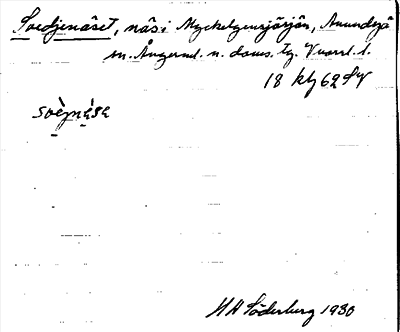 Svedjenäset, näs i Myckelgensjösjön, Anundsjö
sn. Ångerml. n. doms. tg. Vnorrl. l.
18 kh 62 SV
svèjnèsa
H H Söderberg 1930